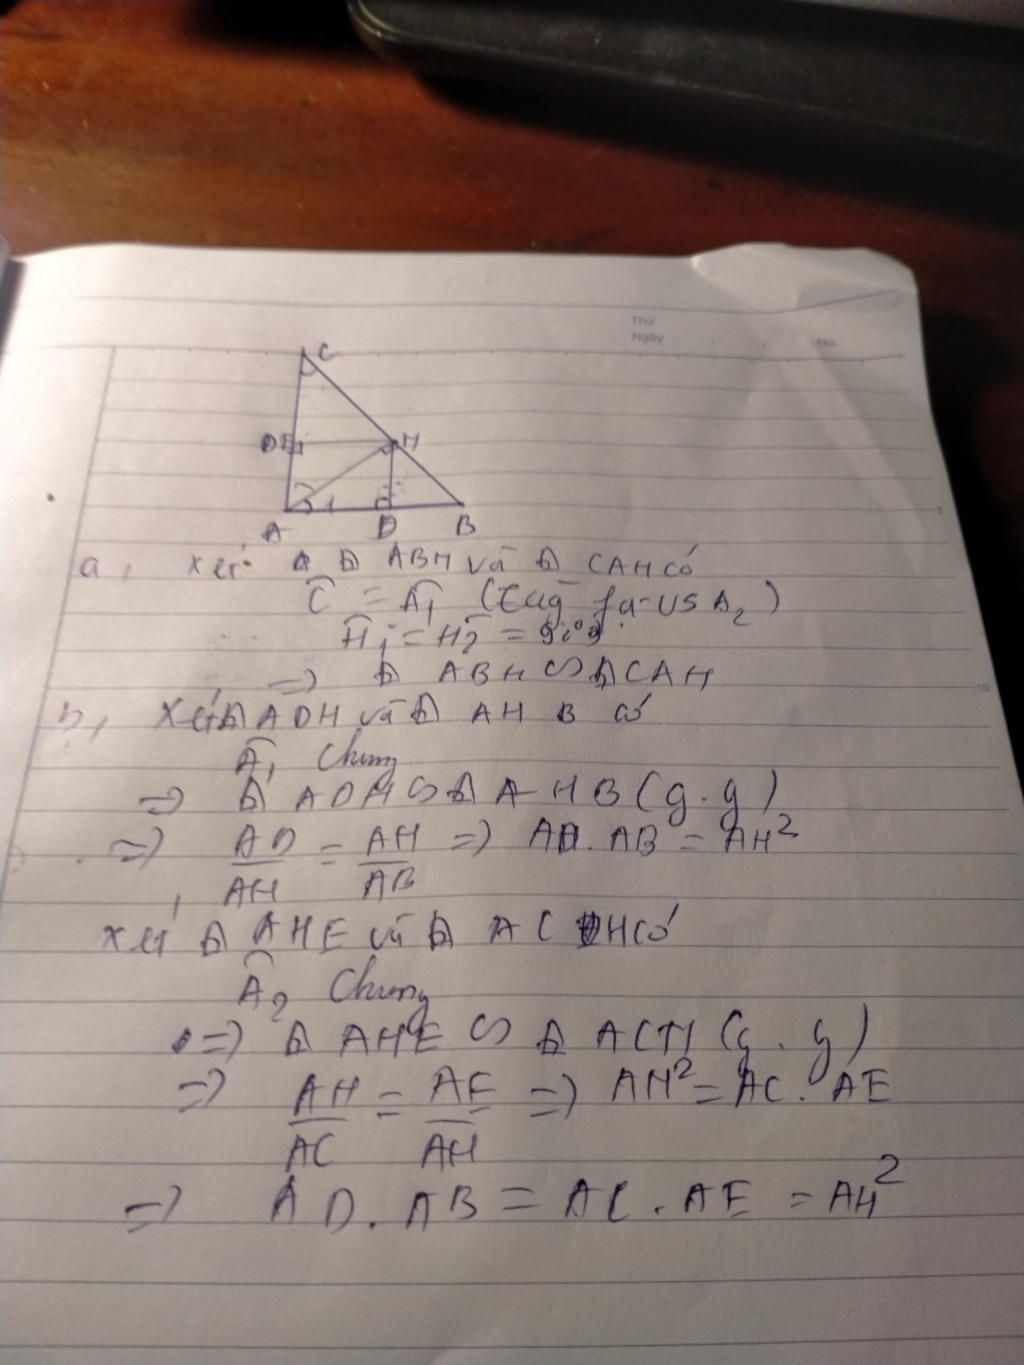 Thứ
Ngày
No.
C
E
H
A 1
D
B
a, Xét Δ ABH và Δ CAH có
Ĉ = Â₁ (Cùng phụ vs A₂)
Ĥ₁ = Ĥ₂ = 90°
=> Δ ABH ∽ Δ CAH
b, Xét Δ ADH và Δ AHB có
Â₁ Chung
=> Δ ADH ∽ Δ AHB (g.g)
=> AD/AH = AH/AB => AD. AB = AH²
Xét Δ AHE và Δ ACH có
Â₂ Chung
=> Δ AHE ∽ Δ ACH (g.g)
=> AH/AC = AE/AH => AH² = AC. AE
=> AD. AB = AC. AE = AH²